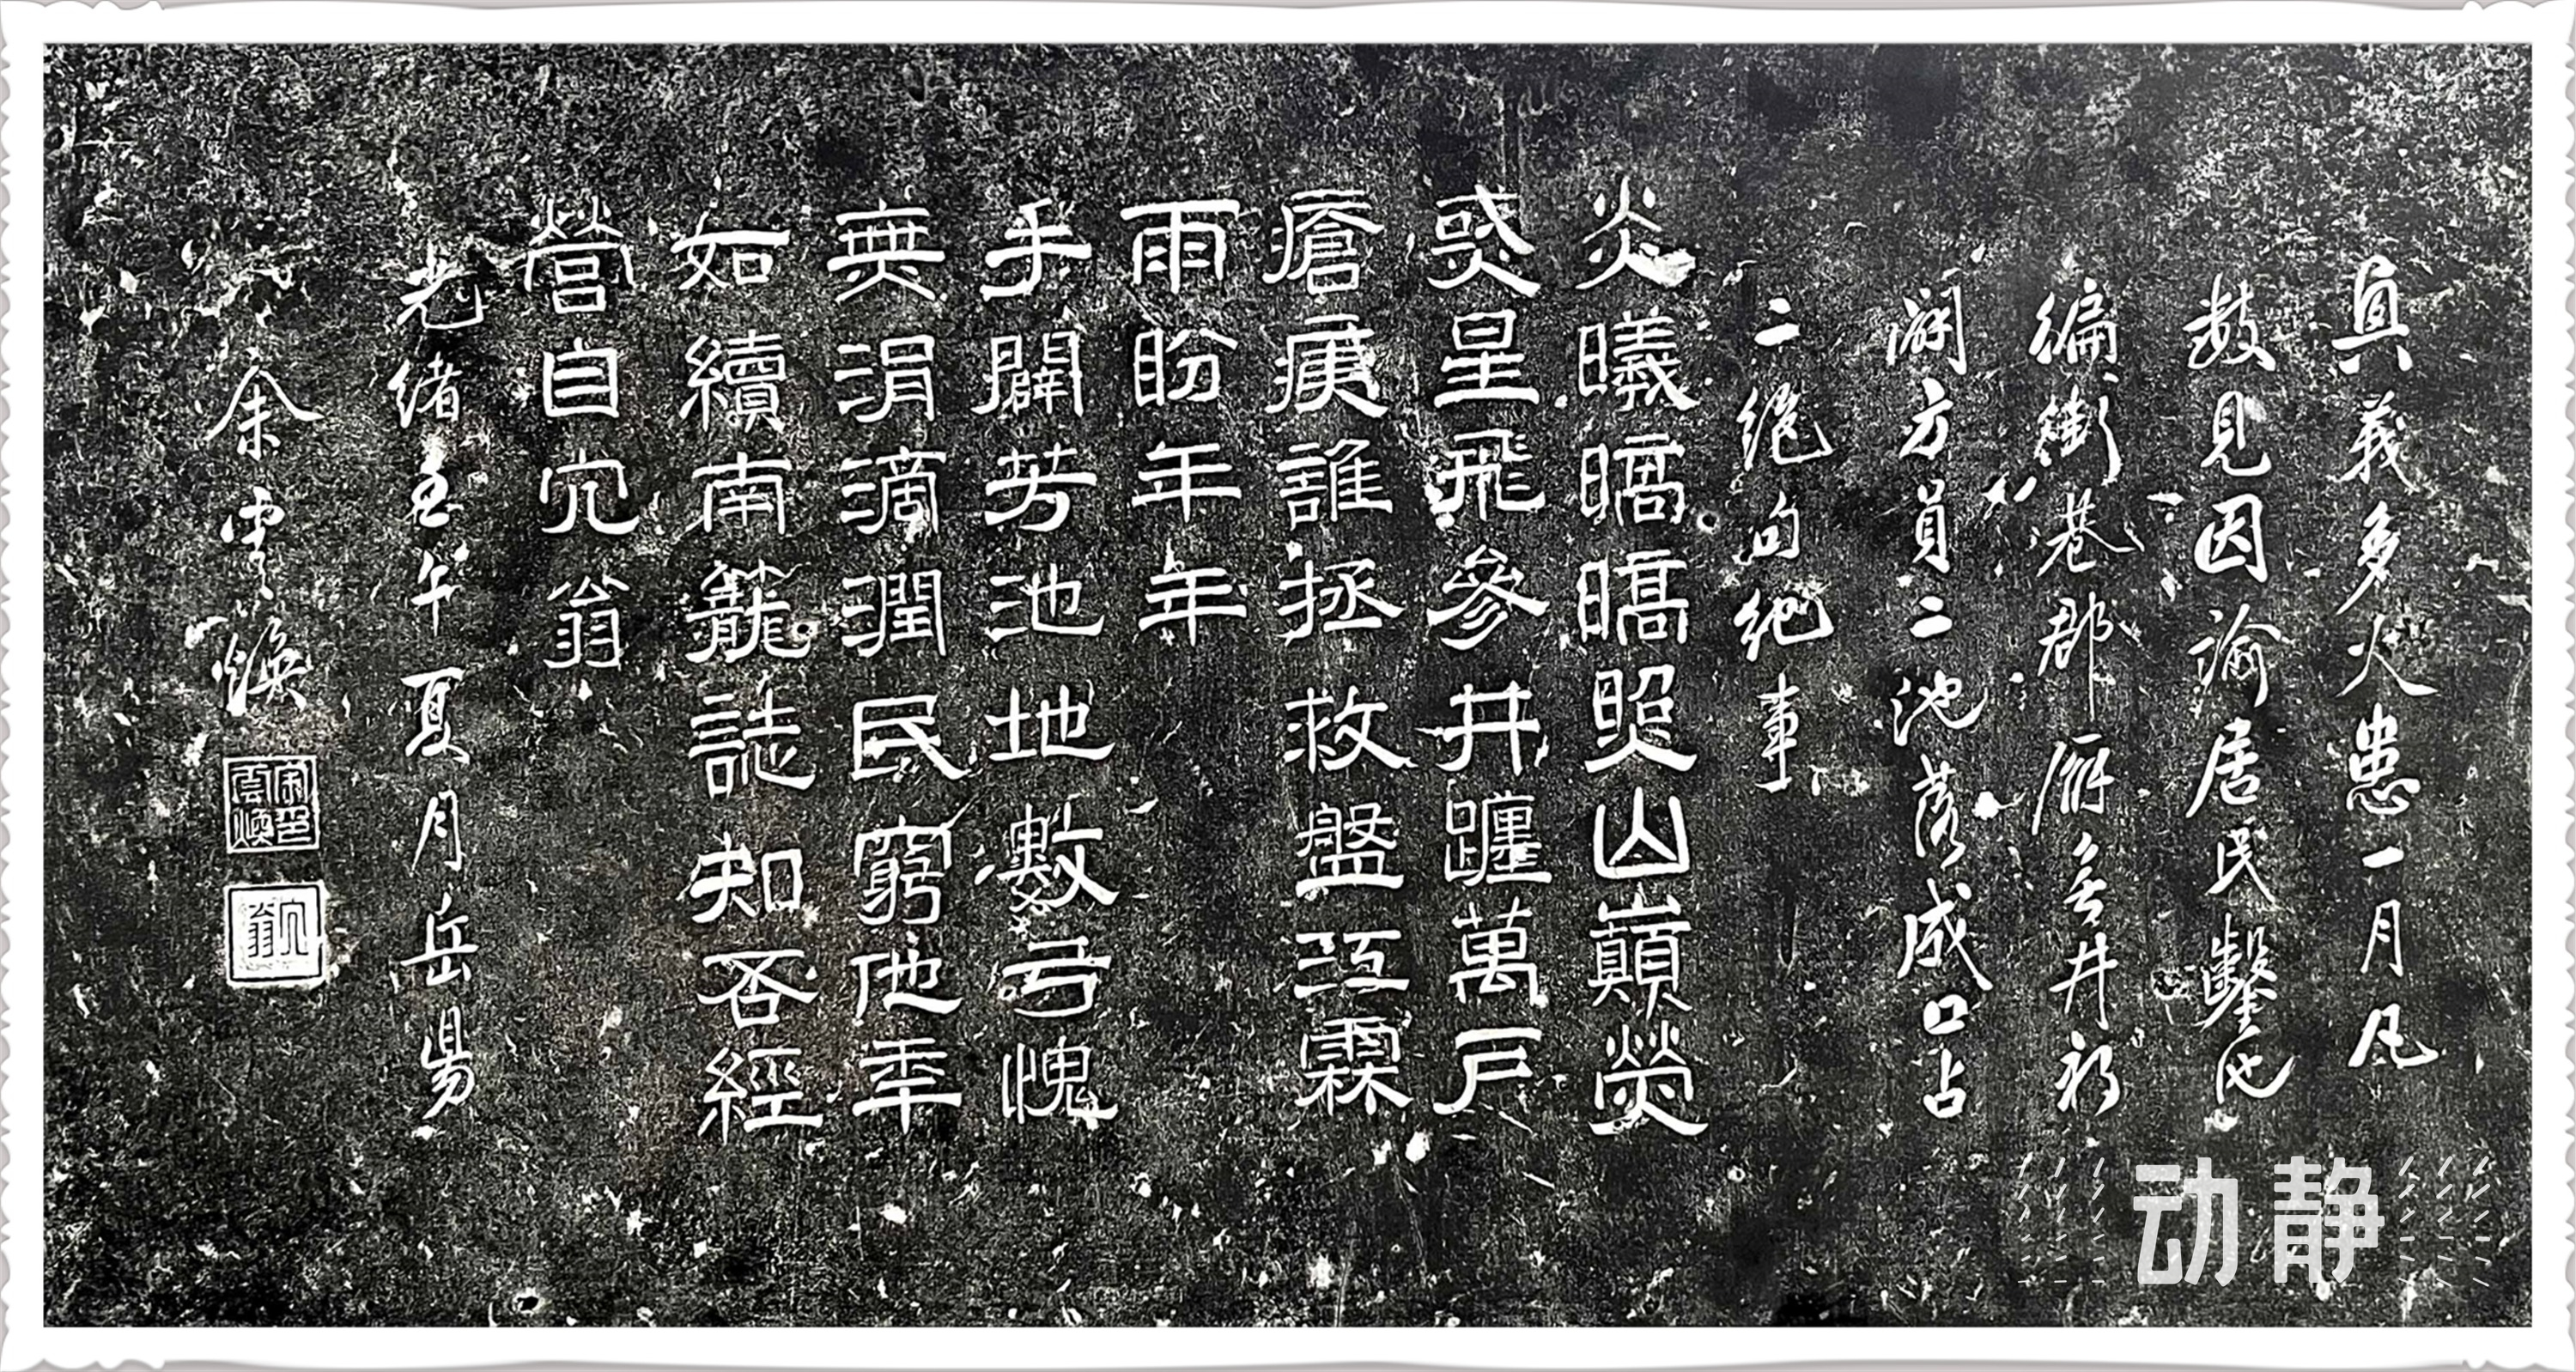 真義多火患一月凡
數見因諭居民鑿池
徧街巷郡廨無井初
開方員二池落成口占
二絕句紀事
炎曦暠暠照山巔熒
惑星飛參井躔萬戶
瘡痍誰拯救盤江霖
雨盼年年
手闢芳池地數弓愧
無涓滴潤民窮他年
如續南籠誌知否經
營自宂翁
光緒壬午夏月岳陽
余雲煥
余印雲煥
宂翁
动静